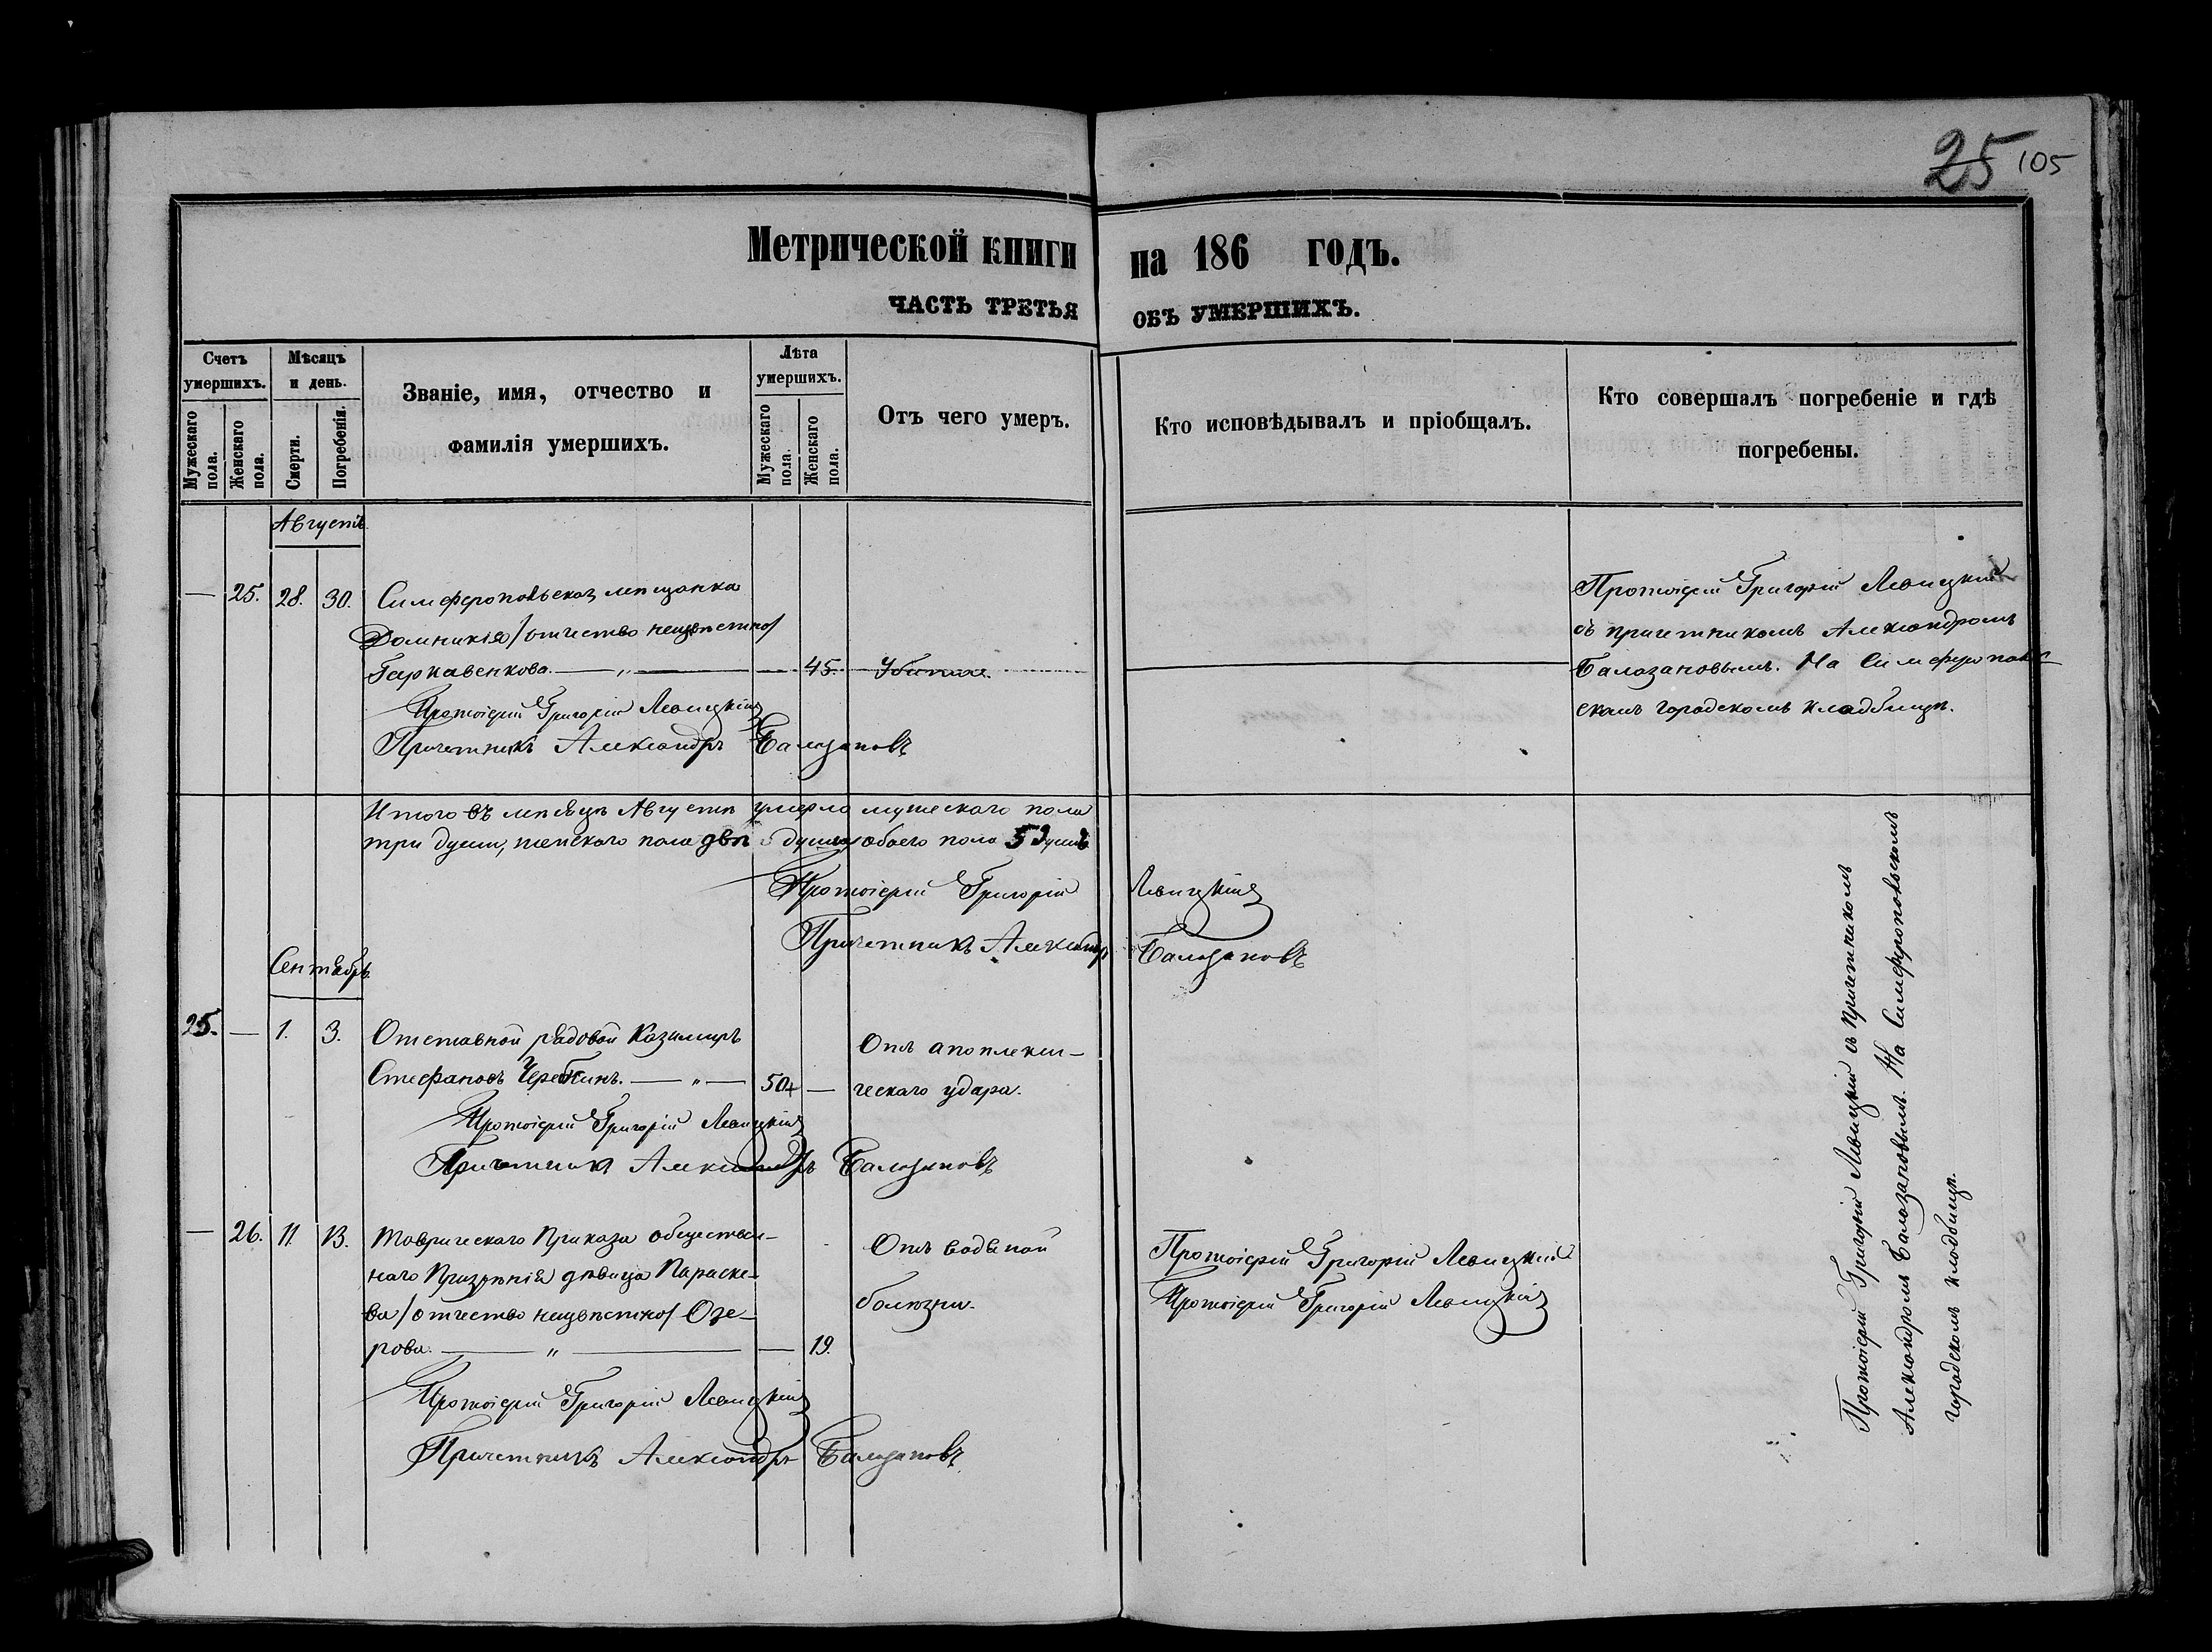 25 105
Метрической книги на 186 годъ.
ЧАСТЬ ТРЕТЬЯ ОБЪ УМЕРШИХЪ.
Счетъ умершихъ.
Мужескаго пола.
Женскаго пола.
Мѣсяцъ и день.
Смерти.
Погребенія.
Званіе, имя, отчество и
фамилія умершихъ.
Лѣта умершихъ.
Мужескаго пола.
Женскаго пола.
Отъ чего умеръ.
Кто исповѣдывалъ и пріобщалъ.
Кто совершалъ погребеніе и гдѣ
погребены.
Августъ
— 25. 28. 30. Симферопольская мѣщанка
Домникія /отчество неизвѣстно/
Гаркавенкова. — „ — 45. Убита.
Протоіерей Григорій Левицкій
Причетникъ Александръ Балазановъ
Протоіерей Григорій Левицкій
съ причетникомъ Александромъ
Балазановымъ. На Симферополь
скомъ городскомъ кладбищѣ.
Итого въ мѣсяцѣ Августѣ умерло мужескаго пола
три души, женскаго пола двѣ души, обоего пола 5 душъ
Протоіерей Григорій Левицкій
Причетникъ Александръ Балазановъ
Сентябрь
25. — 1. 3. Отставной рядовой Казимиръ
Стефановъ — „ — 50 —
Отъ апоплекси-
ческаго удара.
Протоіерей Григорій Левицкій
Причетникъ Александръ Балазановъ
— 26. 11. 13. Таврическаго Приказа обществен-
наго Призрѣнія дѣвица Параске-
ва /отчество неизвѣстно/ Озе-
рова. — „ — 19.
Отъ водяной
болѣзни.
Протоіерей Григорій Левицкій
Причетникъ Александръ Балазановъ
Протоіерей Григорій Левицкій
Протоіерей Григорій Левицкій
Протоіерей Григорій Левицкій съ причетникомъ
Александромъ Балазановымъ. На Симферопольскомъ
городскомъ кладбищѣ.